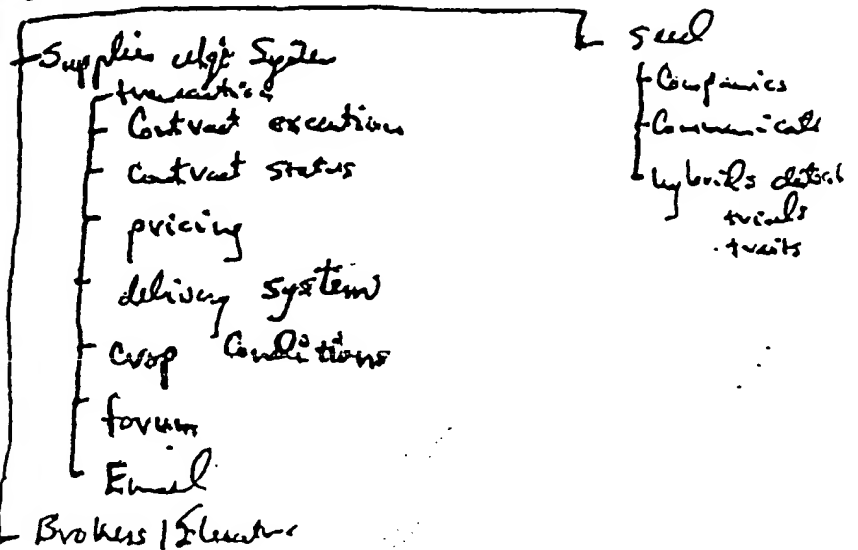 Supplier Mgt System
transaction
Contract execution
Contract status
pricing
delivery system
Crop Conditions
forum
Email
Brokers /
Seed
Companies
hybrids
trials
traits